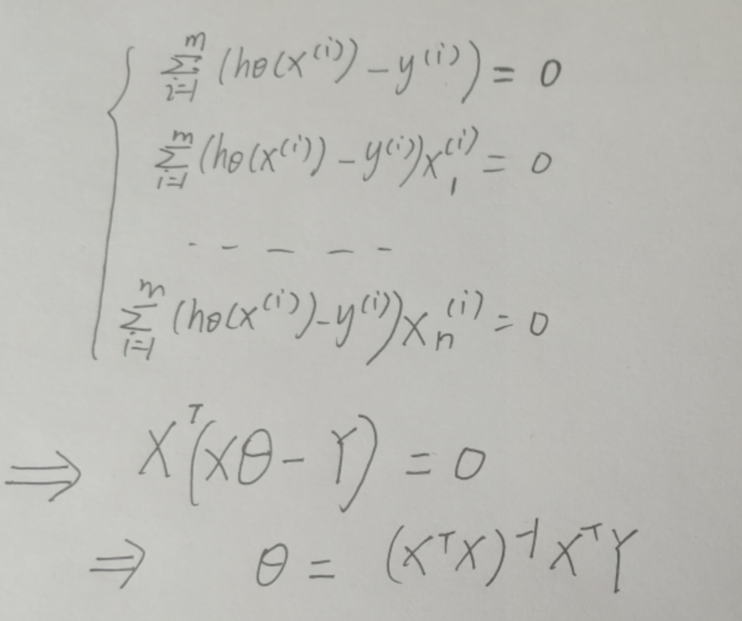 ∑_{i=1}^{m} (hθ(x^{(i)}) - y^{(i)}) = 0
∑_{i=1}^{m} (hθ(x^{(i)}) - y^{(i)}) x_1^{(i)} = 0
- - - - -
∑_{i=1}^{m} (hθ(x^{(i)}) - y^{(i)}) x_n^{(i)} = 0
⇒ X^T (Xθ - Y) = 0
⇒ θ = (X^T X)^{-1} X^T Y